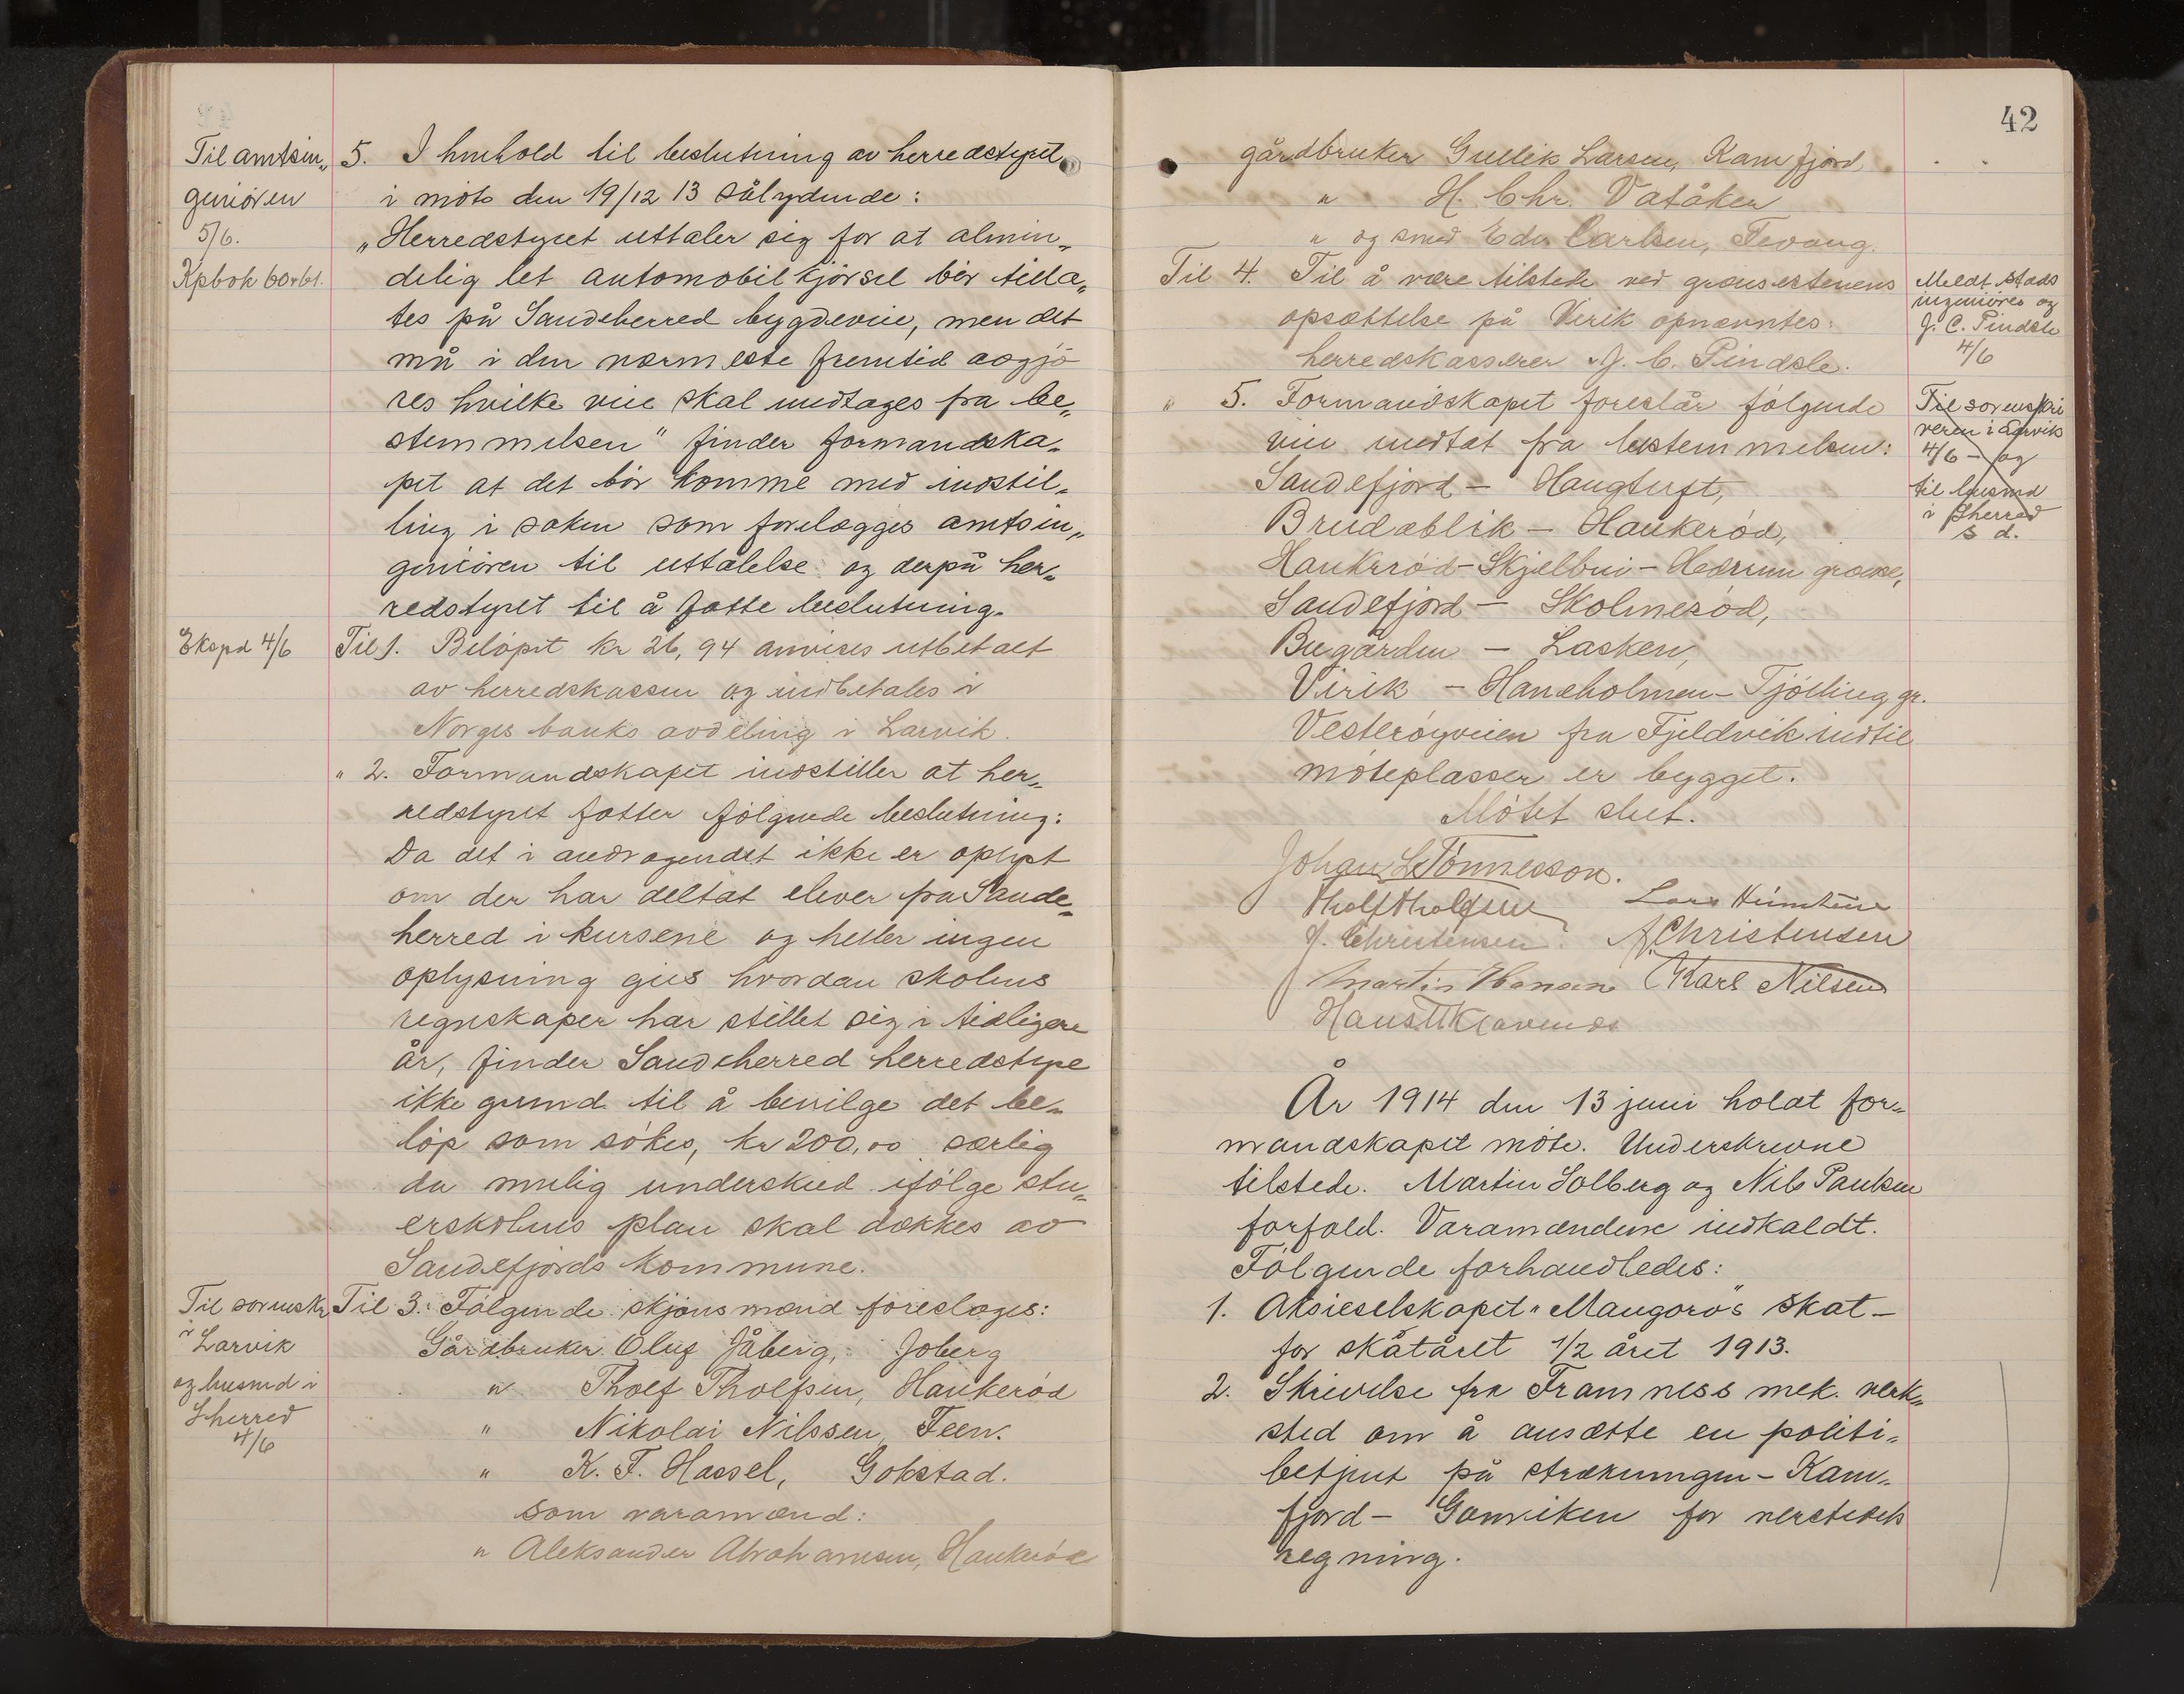 Til amtsin„
geniören
5/6.
Kpbok 60+61.
5. I henhold til beslutning av herredstyret
i möte den 19/12 13 sålydende:
„Herredstyret uttaler sig for at almin„
delig let automobilkjörsel bör tilla„
tes på Sandeherred bygdeveie, men det
må i den nærmeste fremtid avgjö
res hvilke veie skal undtages fra be„
stemmelsen" finder formandska„
pet at det bör komme med indstil„
ling i saken som forelægges amtsin„
geniören til uttalelse og derpå her„
redstyret til å fatte beslutning.
Ekspd 4/6
Til 1. Belöpet kr 26,94 anvises utbetalt
av herredskassen og indbetales i
Norges banks avdeling i Larvik.
" 2. Formandskapet indstiller at her„
redstyret fatter fölgende beslutning:
Da det i andragendet ikke er oplyst
om der har deltat elever fra Sande„
herred i kursene og heller ingen
oplysning gies hvordan skolens
regnskaper har stillet sig i tidligere
år, finder Sandeherred herredstyre
ikke grund til å bevilge det be„
löp som sökes, kr 200,00 særlig
da mulig underskud ifölge stu„
erskolens plan skal dækkes av
Sandefjords kommune.
Til sorenskr
i Larvik
og lensmd i
Sherred
4/6
Til 3. Fölgende skjönsmænd foreslåges:
Gårdbruker Oluf Jåberg, Joberg
" Tholf Tholfsen, Haukeröd
" Nikolai Nilssen, Feen.
" K. F. Hassel, Gokstad.
som varamænd:
" Aleksander Abrahamsen, Haukeröd
42
gårdbruker Gullik Larsen, Kamfjord
" H. Chr. Vatåker
" og smed Edv. Carlsen, Tevang.
Til 4. Til å være tilstede ved grænsestenens
opsættelse på Virik opnævntes:
herredskasserer J. C. Pindsle.
Meldt stads
ingeniören og
J. C. Pindsle
4/6
" 5. Formandskapet foreslår fölgende
veie undtat fra bestemmelsen:
Sandefjord – Haugtuft,
Brudablik – Haukeröd,
Haukeröd – Skjelbrei – Hedrum grænse,
Sandefjord – Skolmeröd,
Bugården – Lasken,
Virik – Haneholmen – Tjölling gr.
Vesteröyveien fra Fjeldvik indtil
möteplasser er bygget.
Mötet slut.
Til sorenskri
veren i Larvik
4/6 – og
til lensmd
i Sherred
s d.
Johan L Tönnesson.
Tholf Tholfsen
J. Christensen. A. Christensen
Martin Hansen Karl Nilsen
Hans
År 1914 den 13 juni holdt for„
mandskapet möte. Underskrevne
tilstede. Martin Solberg og Nils Paulsen
forfald. Varamændene indkaldt.
Fölgende forhandledes:
1. Aksieselskapet "Mangoro"s skat –
for skatåret 1/2 året 1913.
2. Skrivelse fra Framness mek. verk„
sted om å ansætte en politi„
betjent på strækningen – Kam„
fjord – Gonviken for verkstedets
regning.